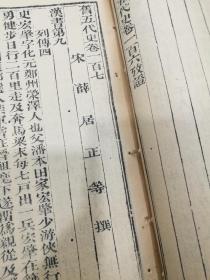 代史卷一百六攷證
舊五代史卷一百七
宋薛居正等撰
漢書第九
列傳四
史宏肇字化元鄭州滎澤人也父潘本田家宏肇少游俠無行
勇健步日行二百里走及奔馬梁末每七戶出一兵宏肇在